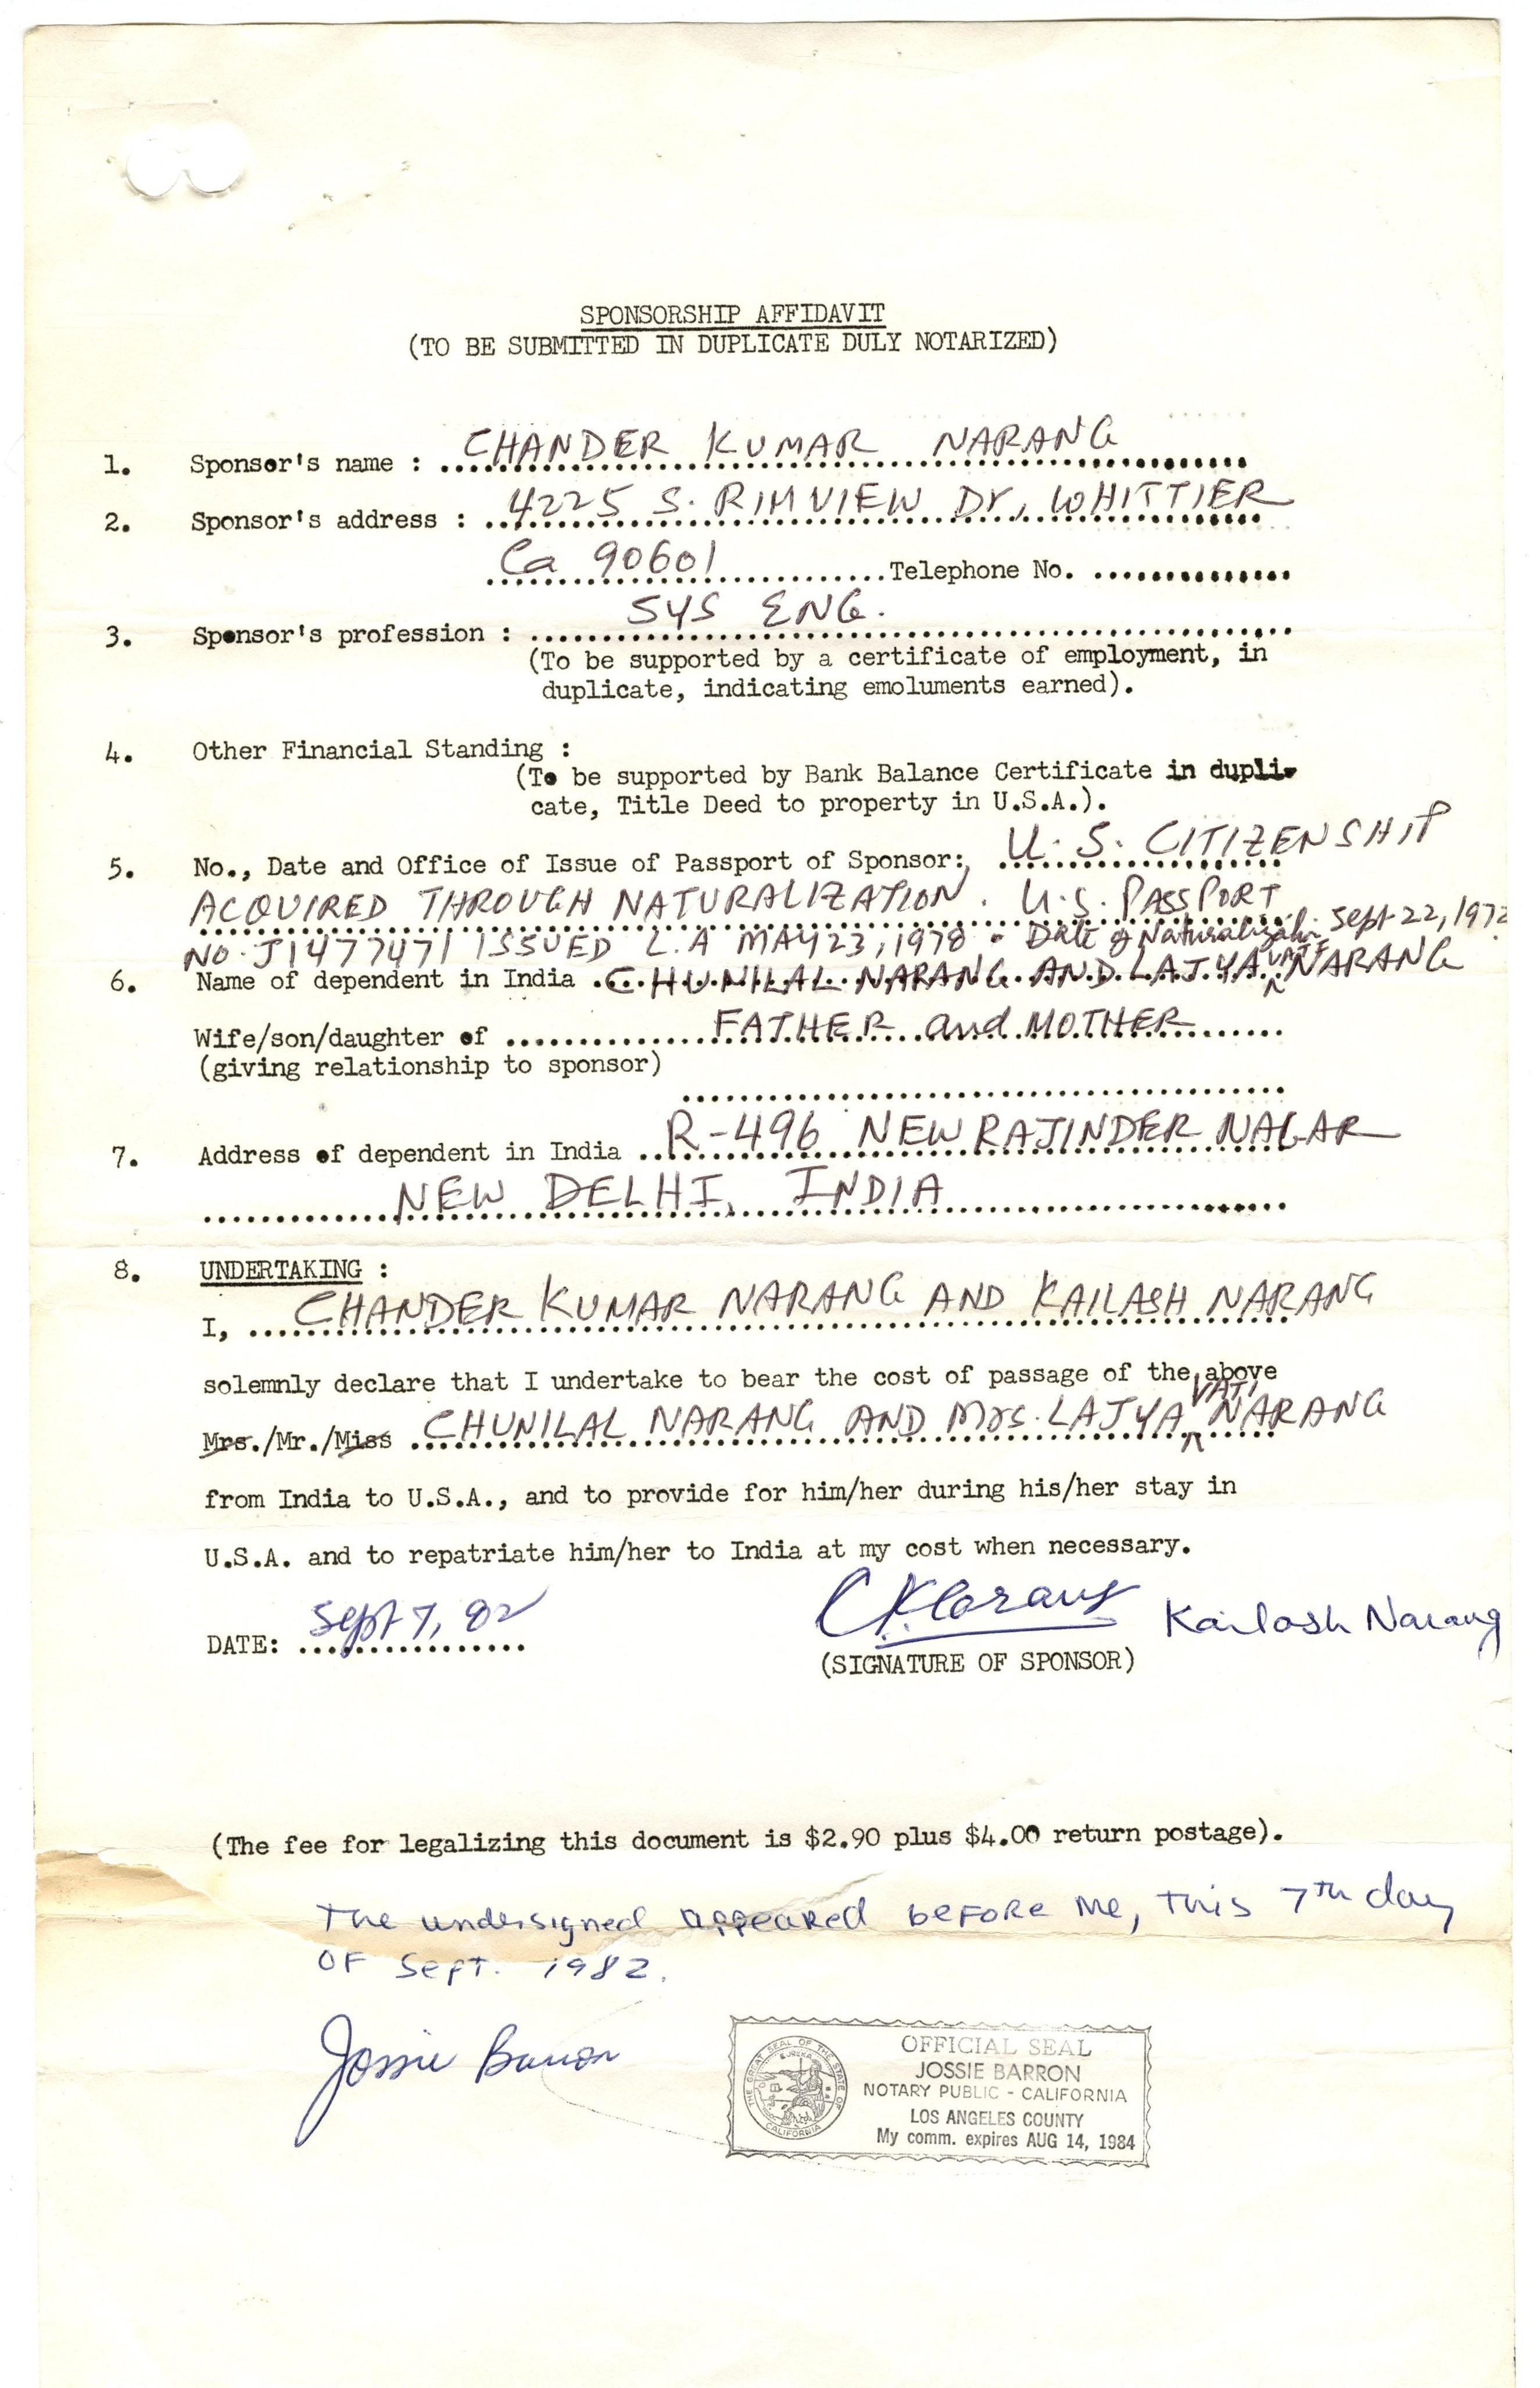 SPONSORSHIP AFFIDAVIT
(TO BE SUBMITTED IN DUPLICATE DULY NOTARIZED)
1. Sponsor's name : CHANDER KUMAR NARANG
2. Sponsor's address : 4225 S. RIMVIEW Dr, WHITTIER
Ca 90601 Telephone No.
3. Sponsor's profession : SYS ENG.
(To be supported by a certificate of employment, in
duplicate, indicating emoluments earned).
4. Other Financial Standing :
(To be supported by Bank Balance Certificate in dupli-
cate, Title Deed to property in U.S.A.).
5. No., Date and Office of Issue of Passport of Sponsor: U.S. CITIZENSHIP
ACQUIRED THROUGH NATURALIZATION. U.S. PASSPORT
NO. J1477471 ISSUED L.A MAY 23, 1978. Date of Naturalization Sept 22, 1972
6. Name of dependent in India CHUNILAL NARANG AND LAJYA VATI NARANG
Wife/son/daughter of FATHER and MOTHER
(giving relationship to sponsor)
7. Address of dependent in India R-496 NEW RAJINDER NAGAR
NEW DELHI, INDIA
8. UNDERTAKING :
I, CHANDER KUMAR NARANG AND KAILASH NARANG
solemnly declare that I undertake to bear the cost of passage of the above
Mrs./Mr./Miss CHUNILAL NARANG AND Mrs. LAJYA VATI NARANG
from India to U.S.A., and to provide for him/her during his/her stay in
U.S.A. and to repatriate him/her to India at my cost when necessary.
DATE: Sept 7, 82 CKNarang Kailash Narang
(SIGNATURE OF SPONSOR)
(The fee for legalizing this document is $2.90 plus $4.00 return postage).
The undersigned appeared before me, this 7th day
of Sept. 1982.
Jossie Barron
OFFICIAL SEAL
JOSSIE BARRON
NOTARY PUBLIC - CALIFORNIA
LOS ANGELES COUNTY
My comm. expires AUG 14, 1984
THE GREAT SEAL OF THE STATE OF CALIFORNIA
EUREKA